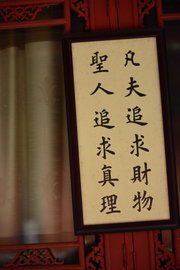 凡夫追求財物
聖人追求真理